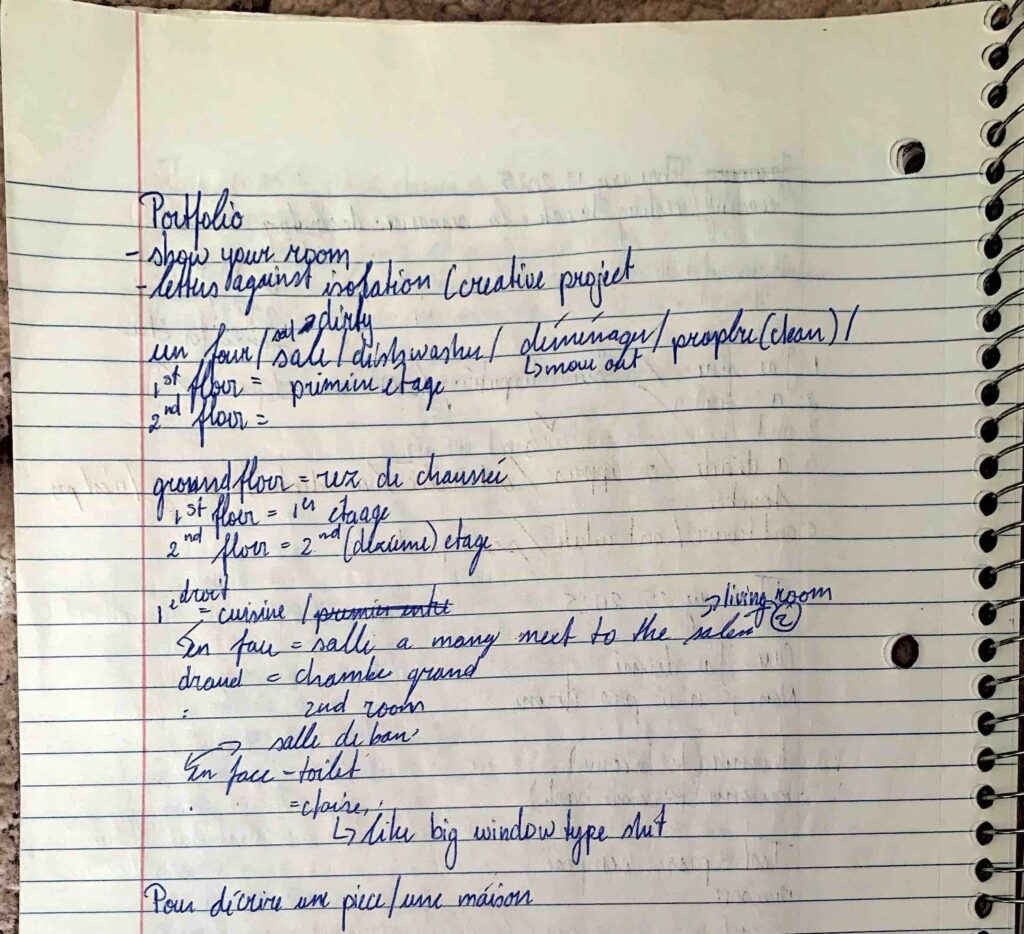 Portfolio
- show your room
- letters against isolation / creative project
sal → dirty
un four / sale / dishwasher / déménager / propbre (clean) /
↳ move out
1st floor = primium etage
2nd floor =
ground floor = rez de chaussé
1st floor = 1er etaage
2nd floor = 2nd (dexieme) etage
droit
1e = cuisine /
→ living room
En face = salle a many next to the salon 2
draud = chambe grand
= 2nd room
salle de ban
En face - toilet
= claire,
↳ like big window type shit
Pour décrire une piece / une máison